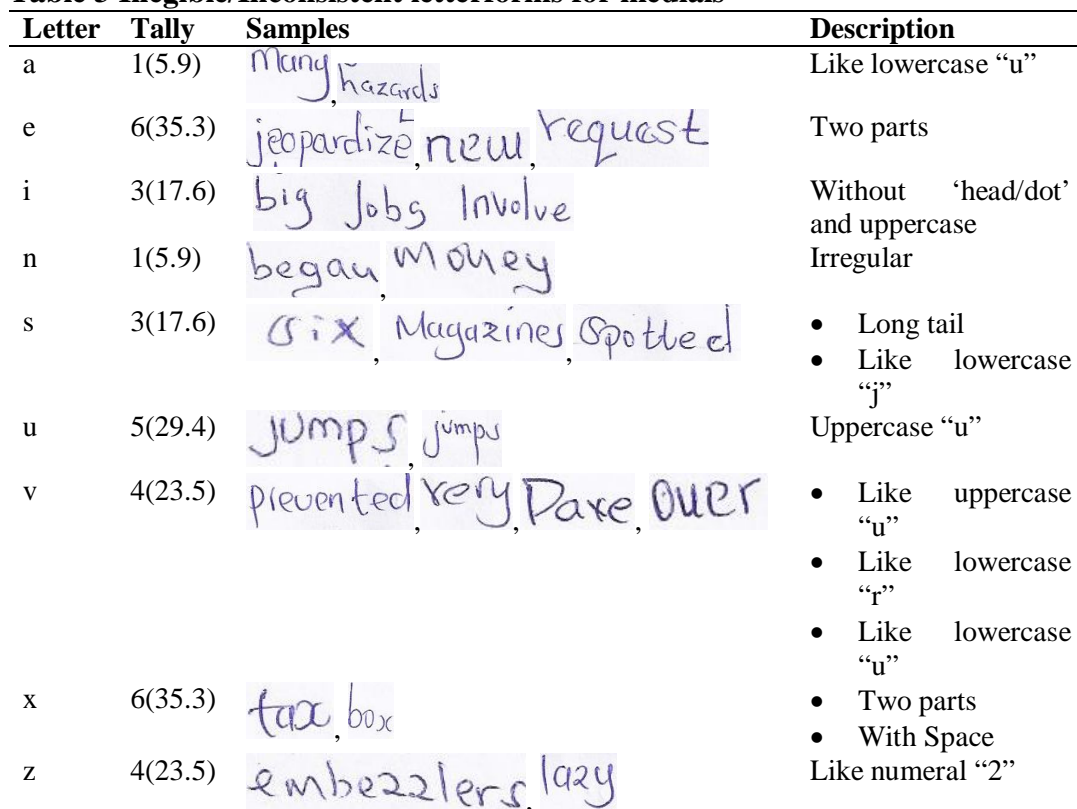 Illegible/Inconsistent letterforms for medials
Letter Tally Samples Description
a 1(5.9) Many, hazards Like lowercase “u”
e 6(35.3) jeopardize, new, request Two parts
i 3(17.6) big Jobs Involve Without ‘head/dot’
and uppercase
n 1(5.9) began, Money Irregular
s 3(17.6) six, Magazines, Spotted • Long tail
• Like lowercase
“j”
u 5(29.4) jumps, jumps Uppercase “u”
v 4(23.5) prevented, very, Dave, Over • Like uppercase
“u”
• Like lowercase
“r”
• Like lowercase
“u”
x 6(35.3) tax, box • Two parts
• With Space
z 4(23.5) embezzlers, lazy Like numeral “2”